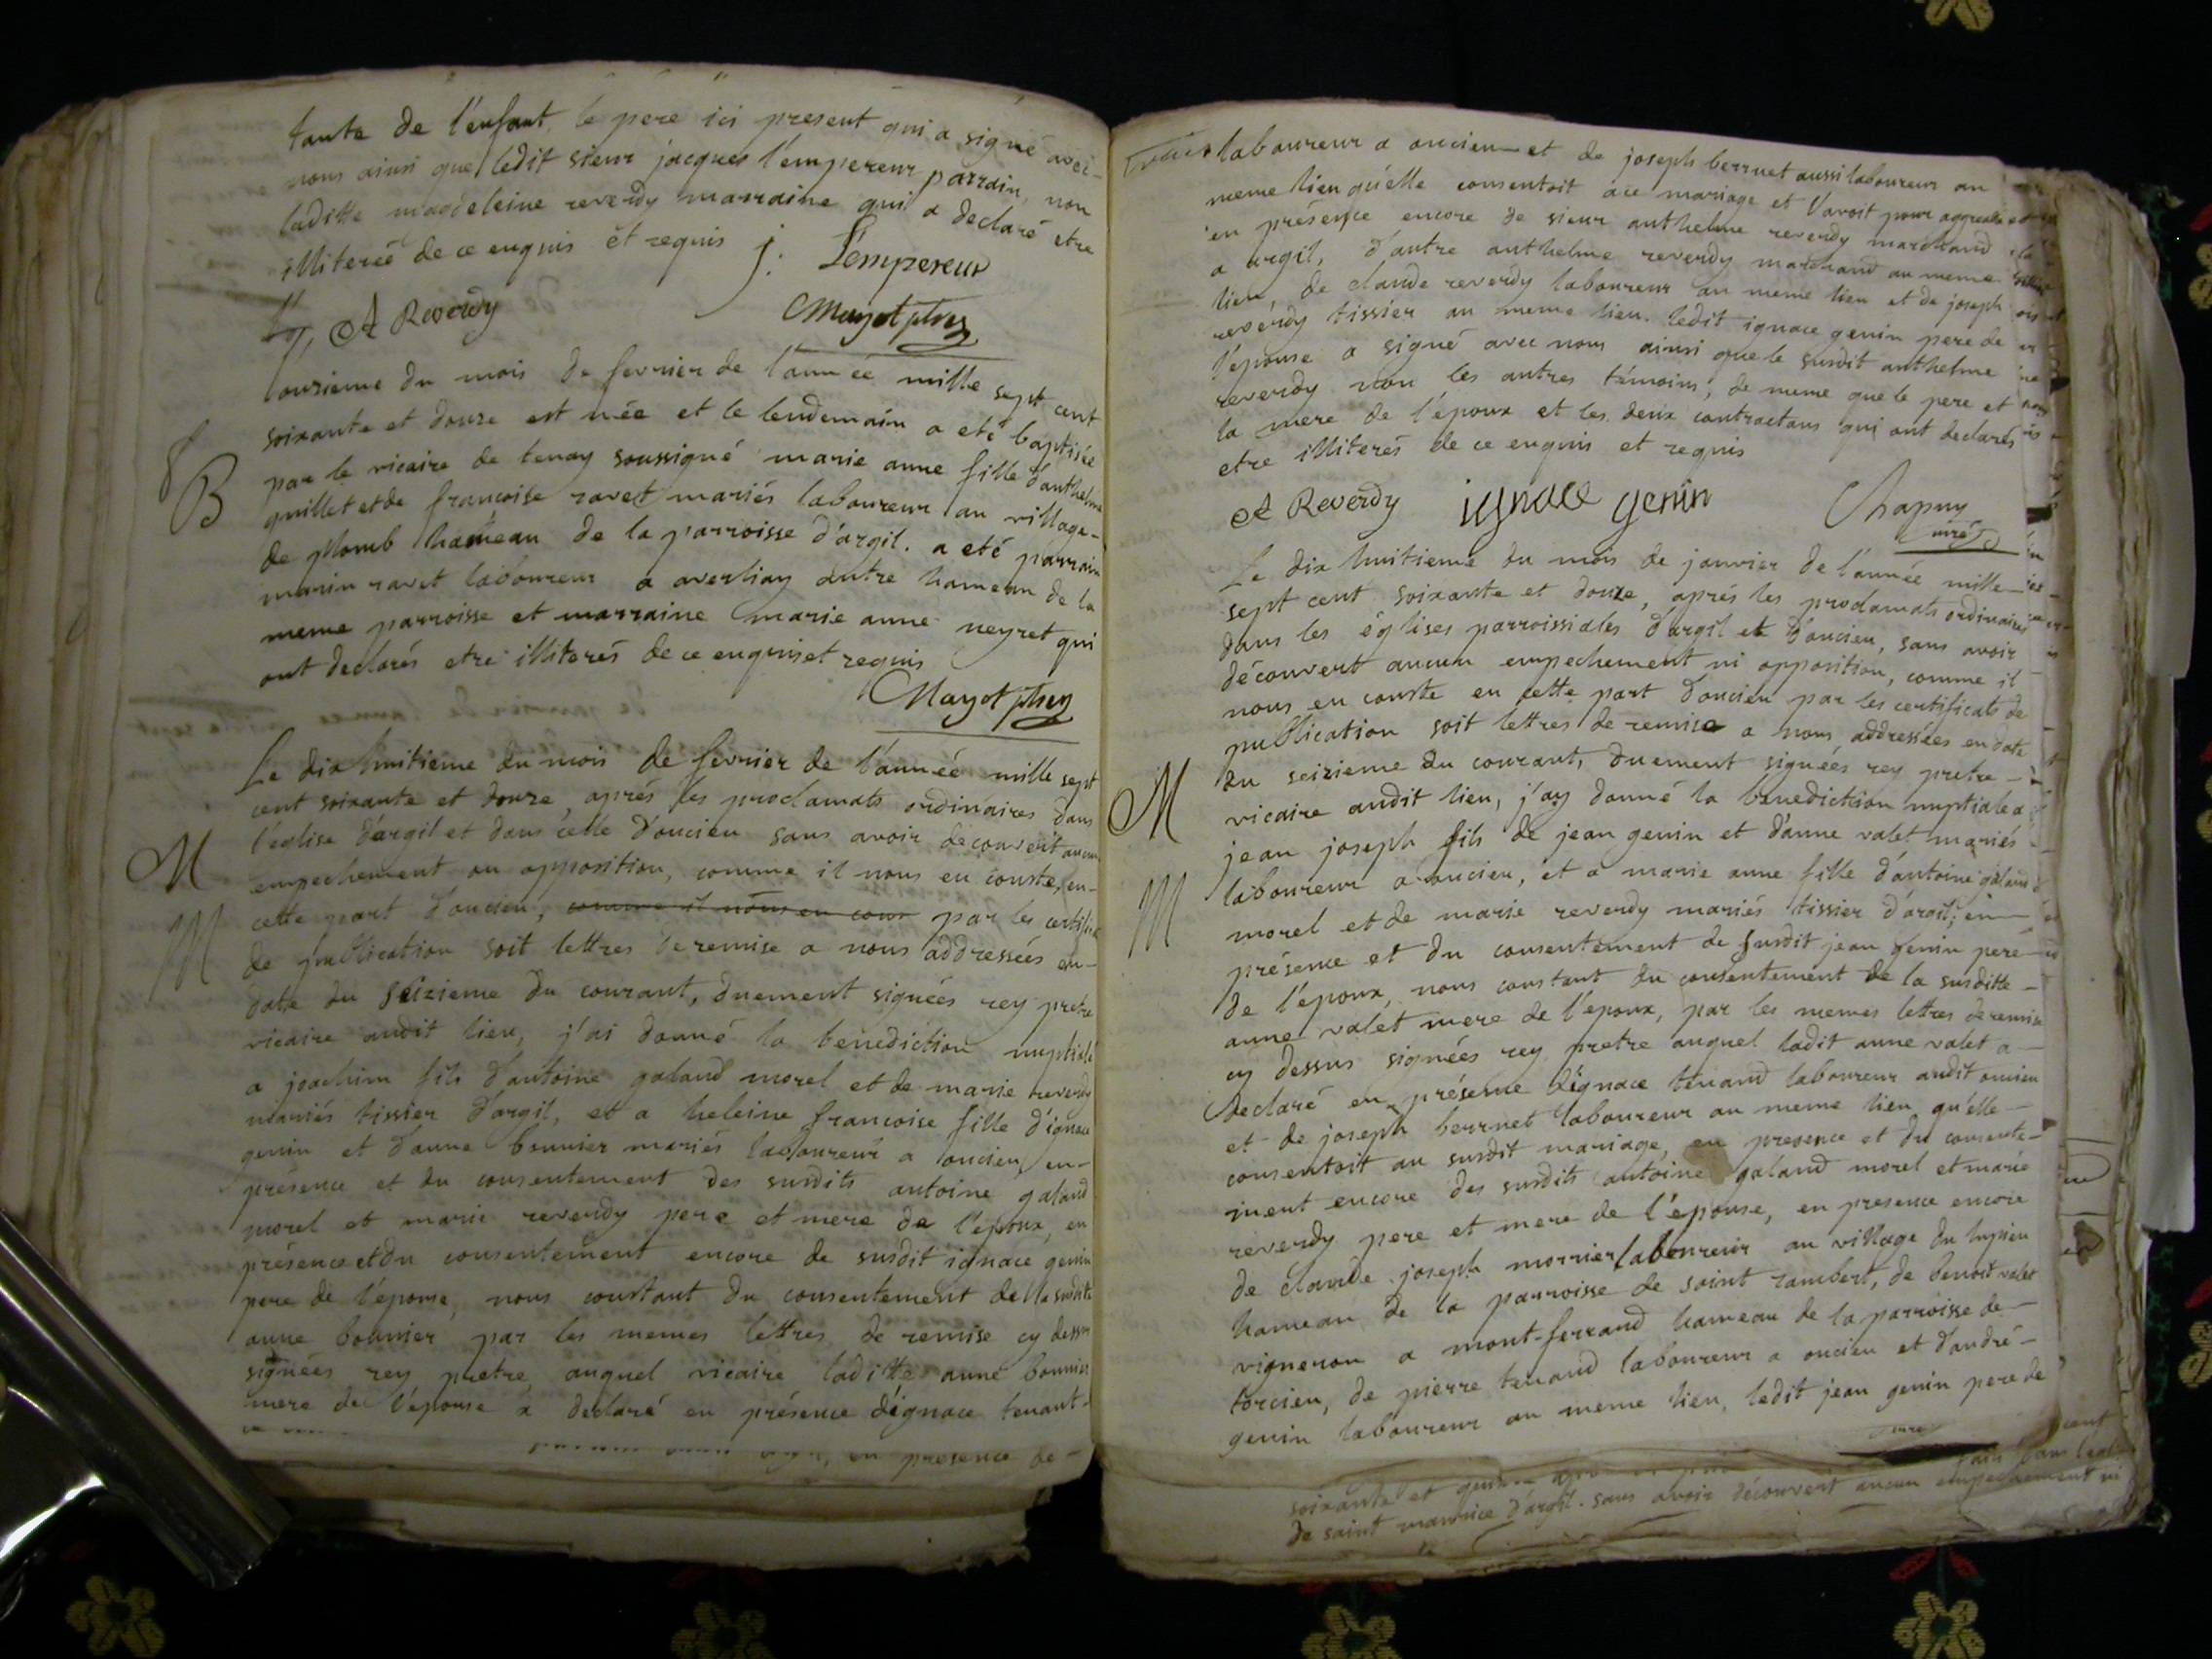 tante de l'enfant, le pere ici present qui a signé avec-
nous ainsi que ledit sieur jacques l'empereur parrain, non
laditte magdeleine reverdy marraine qui a declaré etre
illiteréé de ce enquis et requis j: L'empereur
A Reverdy Mayot ptre
onzieme du mois de fevrier de l'année mille sept cent
soixante et douze est née et le lendemain a eté baptisée
par le vicaire de tenay soussigné marie anne fille d'anthelme
B
guillet et de françoise ravet mariés laboureur au village-
de plomb hameau de la parroisse d'argil. a eté parrain
marin ravet laboureur a averliay autre hameau de la
meme parroisse et marraine marie anne neyret qui
ont declarés etre illiterés de ce enquis et requis
Mayot ptre
Le dix huitieme du mois de fevrier de l'année mille sept
cent soixante et douze, aprés les proclamats ordinaires dans
l'eglise d'argil et dans celle d'oncieu sans avoir découvert aucun
M
empechement ou opposition, comme il nous en conste, en-
cette part d'oncieu, comme il nous en cons par les certific
M
de publication soit lettres de remise a nous addressées en-
date du seizieme du courant, duement signées rey pretre
vicaire audit lieu, j'ai donné la benediction nuptiale
a joachim fils d'antoine galand morel et de marie reverdy
mariés tissier d'argil, et a heleine francoise fille d'ignace
genin et d'anne bonnier mariés laboureur a oncieu, en-
présence et du consentement des susdits antoine galand
morel et marie reverdy pere et mere de l'époux, en
présence et du consentement encore de susdit ignace genin
pere de l'épouse, nous constant du consentement de la susditte
anne bonnier par les memes lettres de remise cy dessus
signées rey pretre, auquel vicaire laditte anne bonnier
mere de l'épouse a declaré en présence d'ignace tenant-
en presence de-
laboureur a oncieu et de joseph berrnet aussi laboureur au
meme lieu qu'elle consentoit a ce mariage et l'avoit pour aggreable
en présence encore de sieur anthelme reverdy marchand
a argil, d'autre anthelme reverdy marchand au meme
lieu, de claude reverdy laboureur au meme lieu et de joseph
reverdy tissier au meme lieu. ledit ignace genin pere de
l'épouse a signé avec nous ainsi que le susdit anthelme
reverdy non les autres témoins, de meme que le pere et
la mere de l'époux et les deux contractans qui ont declarés
etre illiterés de ce enquis et requis
A Reverdy ignace genin Chapuy
curé
Le dix huitieme du mois de janvier de l'année mille-
sept cent soixante et douze, aprés les proclamats ordinaires
dans les églises parroissiales d'argil et d'oncieu, sans avoir
découvert aucun empechement ni opposition, comme il
nous en conste en cette part d'oncieu par les certificats de
publication soit lettres de remise a nous addressées en date
du seizieme du courant, duement signées rey pretre-
M
vicaire audit lieu, j'ay donné la benediction nuptiale a
jean joseph fils de jean genin et d'anne valet mariés
laboureur a oncieu, et a marie anne fille d'antoine galand
M
morel et de marie reverdy mariés tissier d'argil; en
présence et du consentement de susdit jean genin pere
de l'époux, nous constant du consentement de la susditte-
anne valet mere de l'époux, par les memes lettres de remise
cy dessus signées rey pretre auquel ladit anne valet a-
declaré en présense d'ignace tenand laboureur audit oncieu
et de joseph berrnet laboureur au meme lieu qu'elle-
consentoit au susdit mariage, en presence et du consente-
ment encore des susdits antoine galand morel et marie
reverdy pere et mere de l'épouse, en presence encore
de claude joseph morrier laboureur au village du lupieu
hameau de la parroisse de saint rambert, de benoit valet
vigneron a mont-ferrand hameau de la parroisse de-
torcieu, de pierre tenand laboureur a oncieu et d'andré-
genin laboureur au meme lieu, ledit jean genin pere de
soixante et
de saint maurice d'argil. sans avoir découvert aucun empechement ni